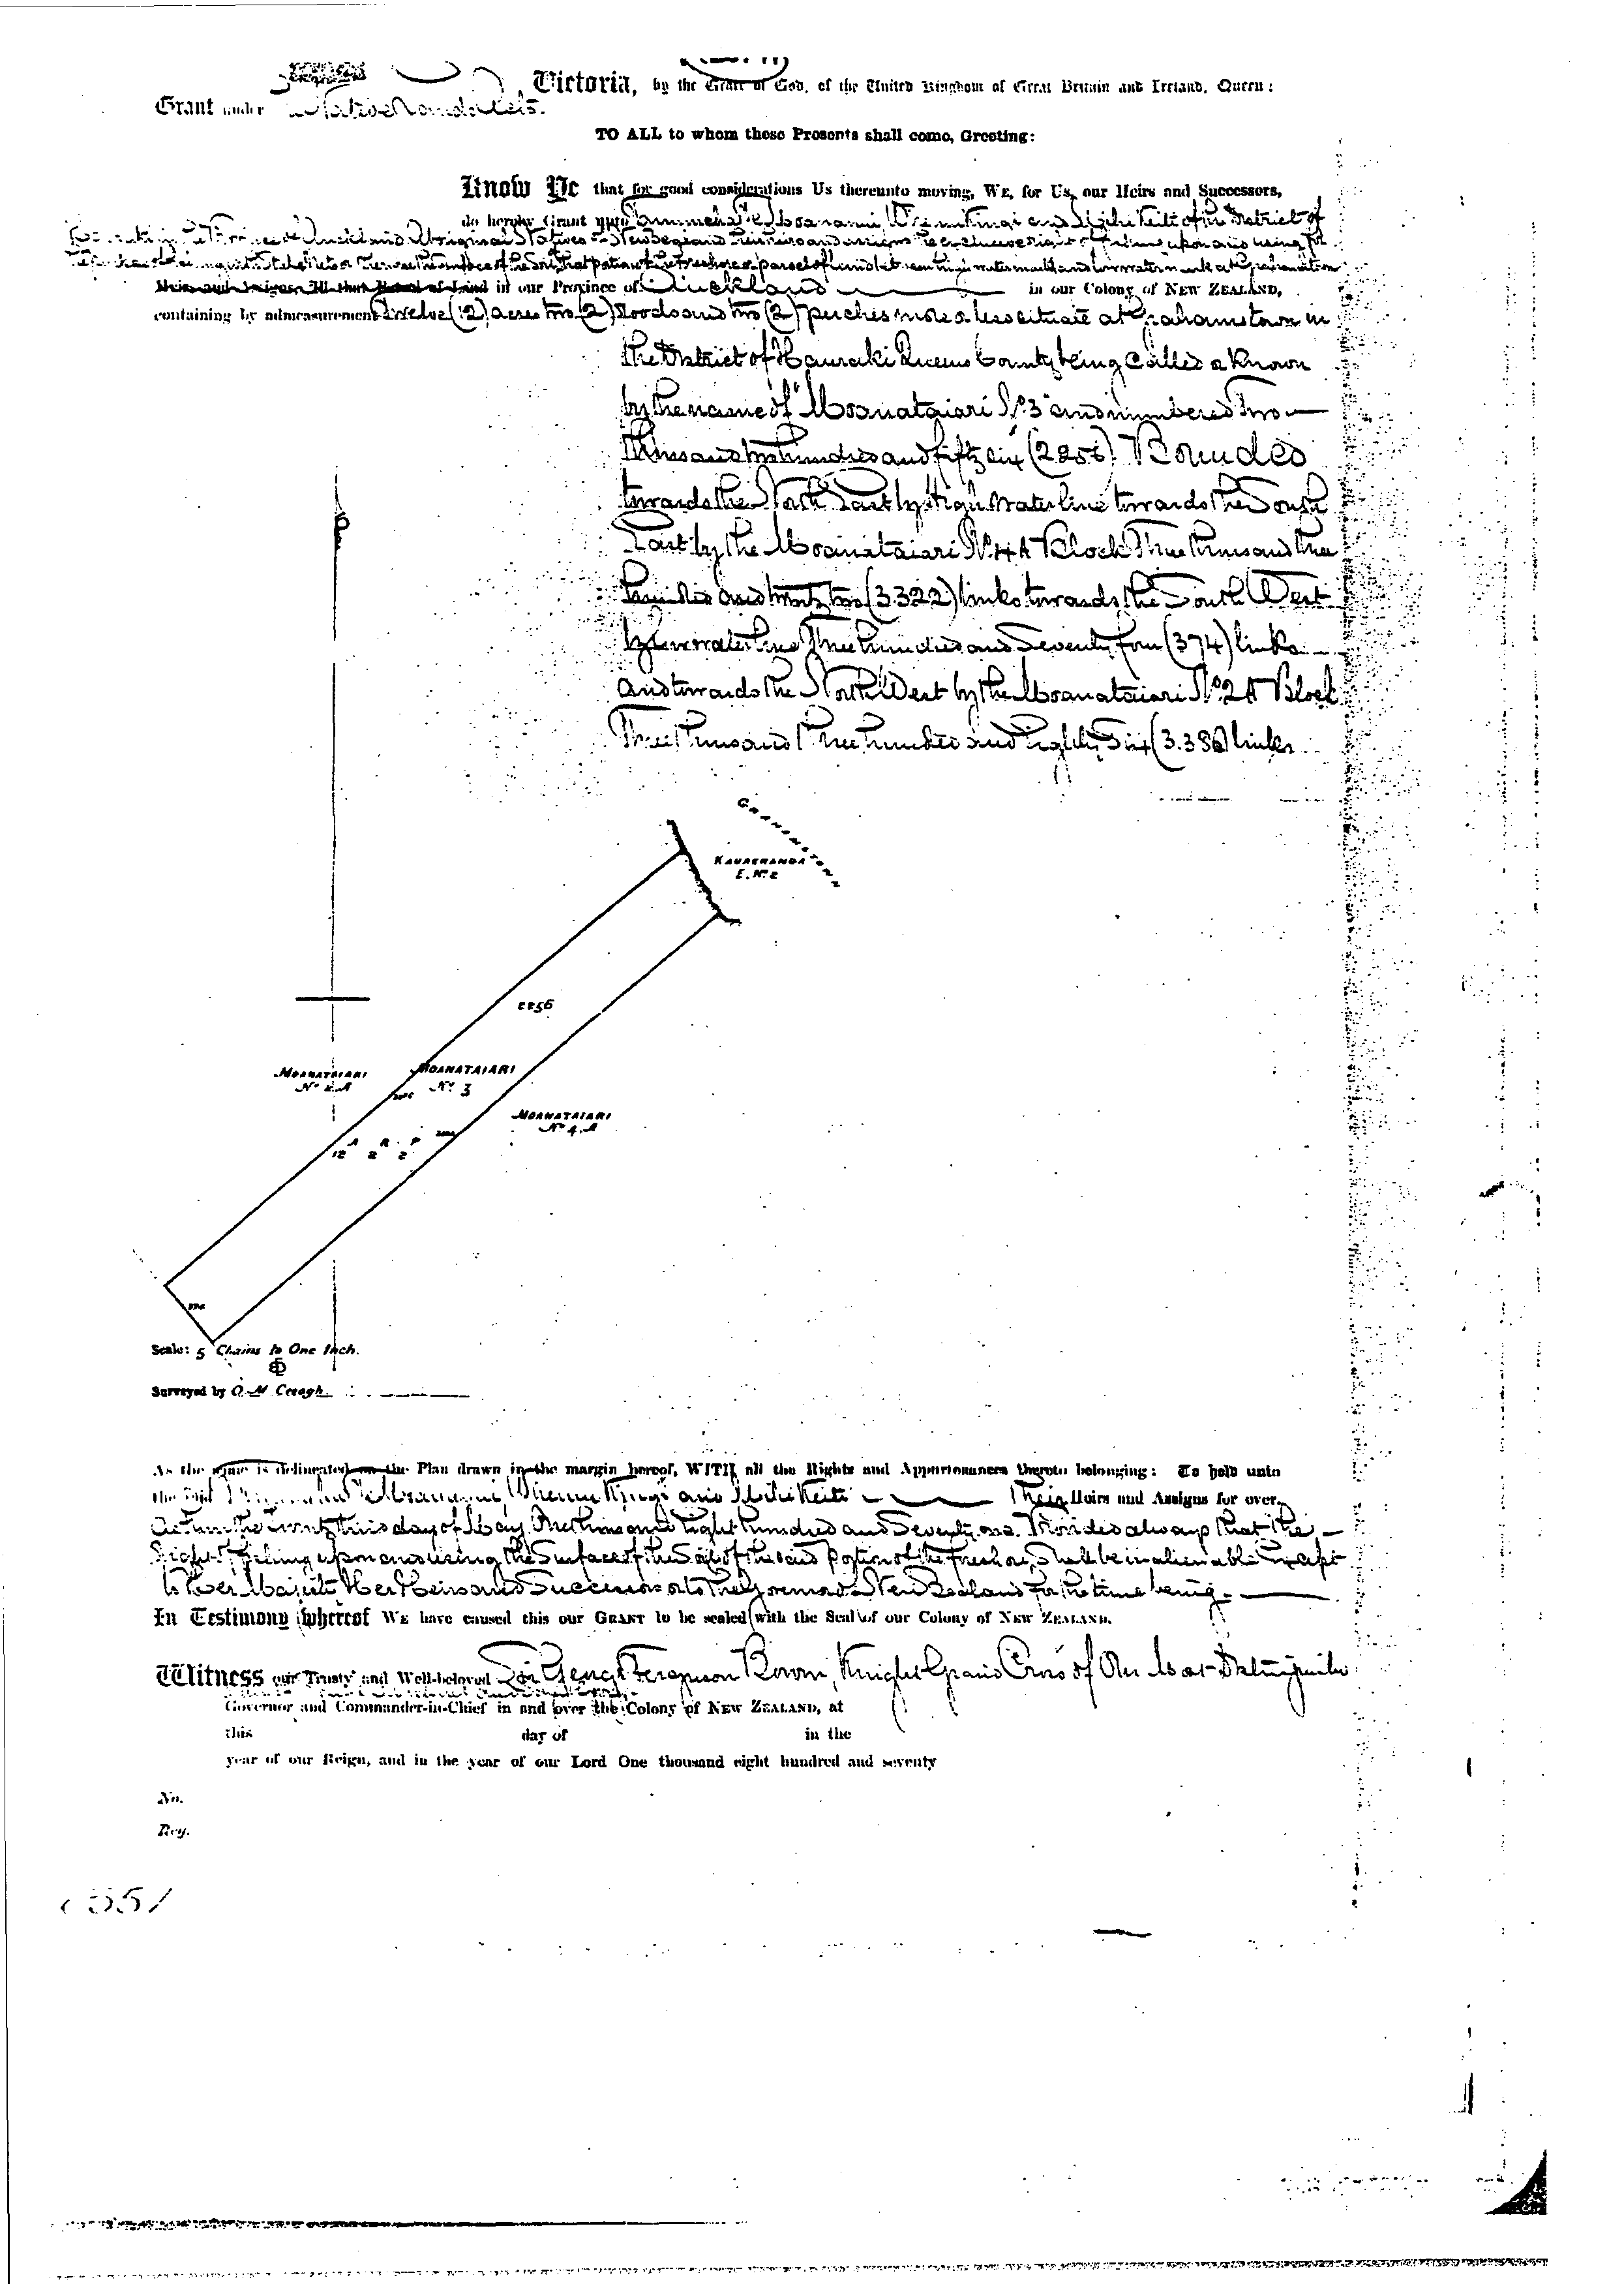 Victoria, by the Grace of God, of the United Kingdom of Great Britain and Ireland, Queen:
Grant under Native Lands Acts.
TO ALL to whom these Presents shall come, Greeting:
Know Ye that for good considerations Us thereunto moving, WE, for Us, our Heirs and Successors,
do hereby Grant unto Moanaroa Wiremu Kingi and Mihi Keiti of the District of
Auckland Aboriginal Natives of New Zealand their heirs and assigns the exclusive right of fishing upon and using for
the surface of the soil of that portion of the foreshore or parcel of land between high water mark and low water mark
in our Province of Auckland in our Colony of NEW ZEALAND,
containing by admeasurement Twelve (12) acres two (2) Roods and two (2) perches more or less situate at Grahamstown in
the District of Hauraki Queens County being called or known
by the name of "Moanataiari No. 3" and numbered Two
Thousand two hundred and fifty six (2256) Bounded
towards the North East by High Water line towards the South
East by the Moanataiari No. 4A Block Three thousand three
hundred and twenty two (3322) links towards the South West
by low water line Three hundred and Seventy four (374) links
and towards the North West by the Moanataiari No. 2A Block
Three thousand three hundred and eighty Six (3.386) links
KAUAERANGA
E. No. 2
2256
MOANATAIARI
No. 2.A
MOANATAIARI
No. 3
MOANATAIARI
No. 4.A
A R P
12 2 2
374
Scale: 5 Chains to One Inch.
Surveyed by O. M. Creagh.
As the same is delineated on the Plan drawn in the margin hereof, WITH all the Rights and Appurtenances thereto belonging: To hold unto
the said Wiremu Kingi and Mihi Keiti Their Heirs and Assigns for ever
the twenty third day of May One thousand Eight hundred and Seventy one. Provided always that the
right of fishing upon and using the Surface of the Soil of the said portion of the foreshore shall be inalienable except
to Her Majesty Her Heirs and Successors or to the Governor of New Zealand for the time being.
In Testimony Whereof WE have caused this our GRANT to be sealed with the Seal of our Colony of NEW ZEALAND.
Witness our Trusty and Well-beloved Sir George Ferguson Bowen, Knight Grand Cross of Our Most Distinguished
Governor and Commander-in-Chief in and over the Colony of NEW ZEALAND, at
this day of in the
year of our Reign, and in the year of our Lord One thousand eight hundred and seventy
No.
Reg.